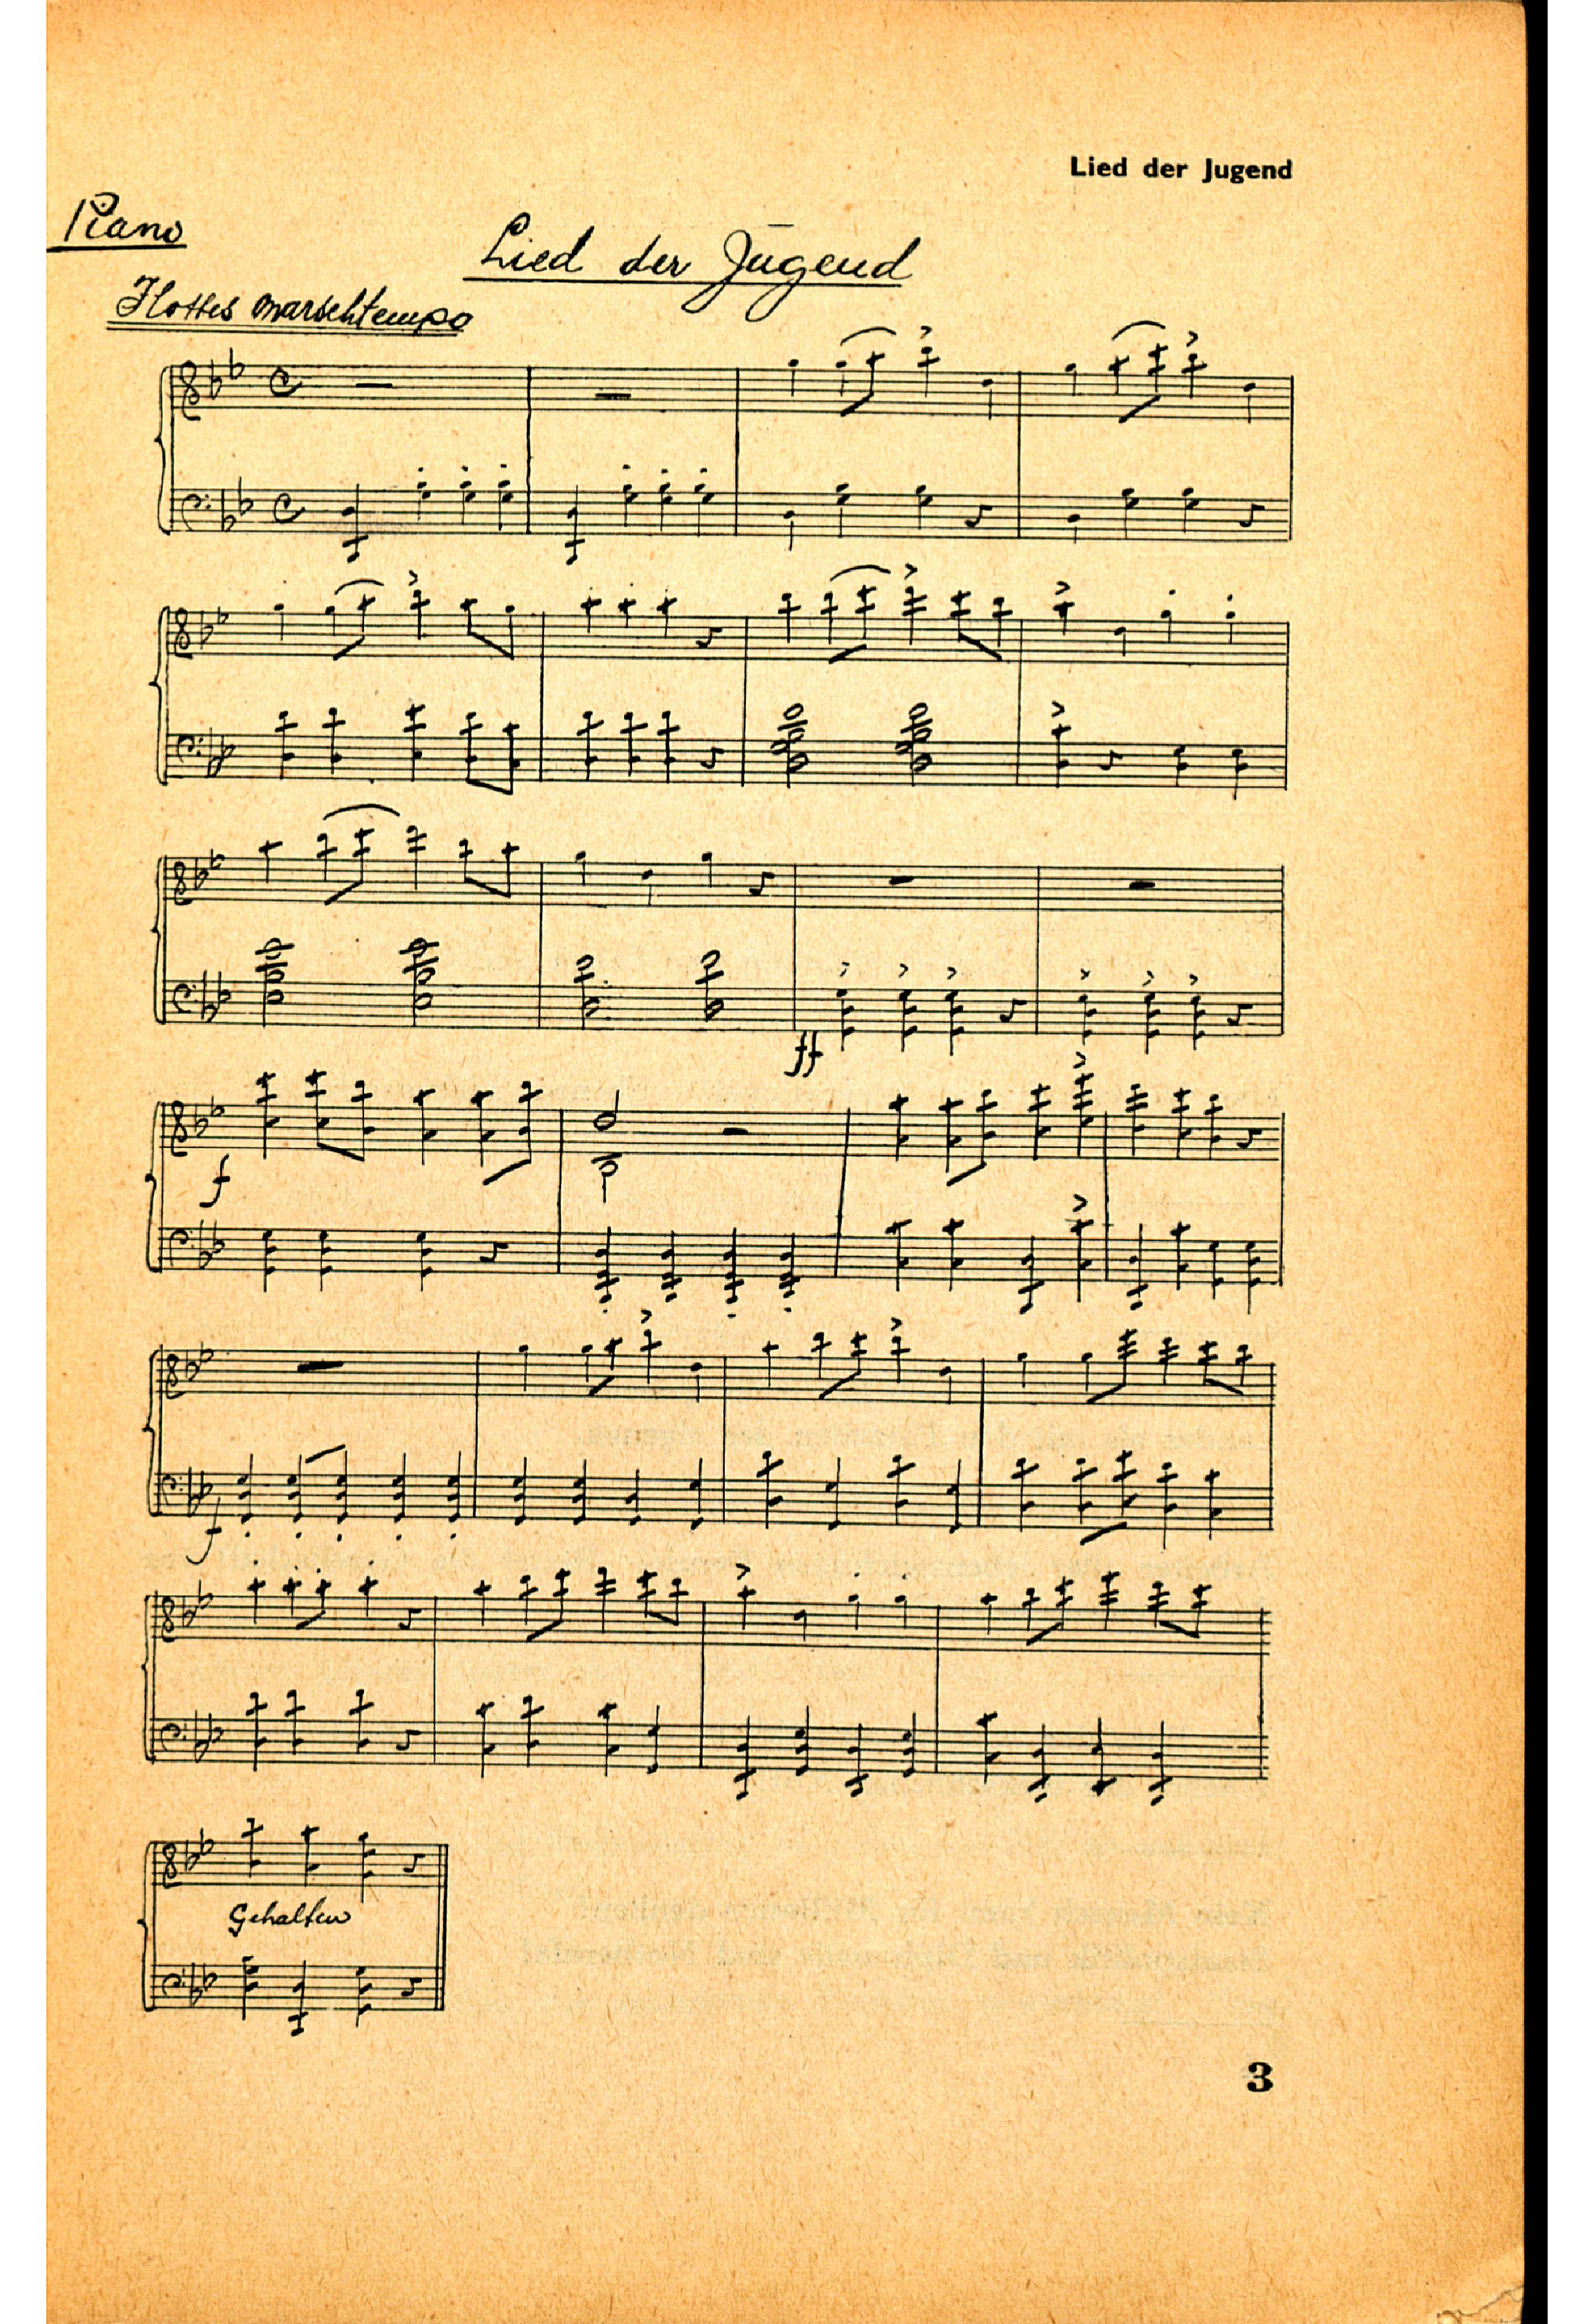 Lied der Jugend
Piano
Lied der Jugend
Flottes Marschtempo
ff
f
f
Gehalten
3